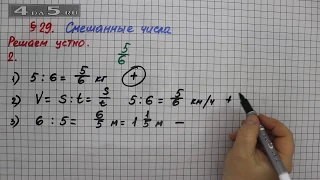 4 da 5.ru
§ 29. Смешанные числа
Решаем устно.
2. 5/6
1) 5 : 6 = 5/6 кг +
2) V = S : t = S/t 5 : 6 = 5/6 км/ч +
3) 6 : 5 = 6/5 м = 1 1/5 м −